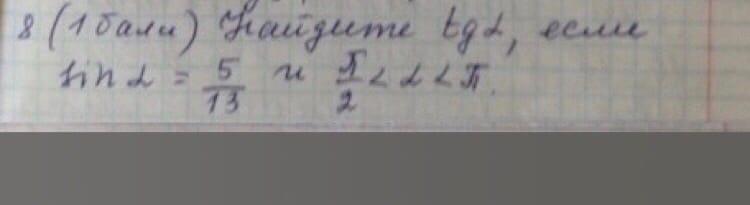 8 (1 балл) Найдите tgα, если
sin α = 5/13 и π/2 < α < π.